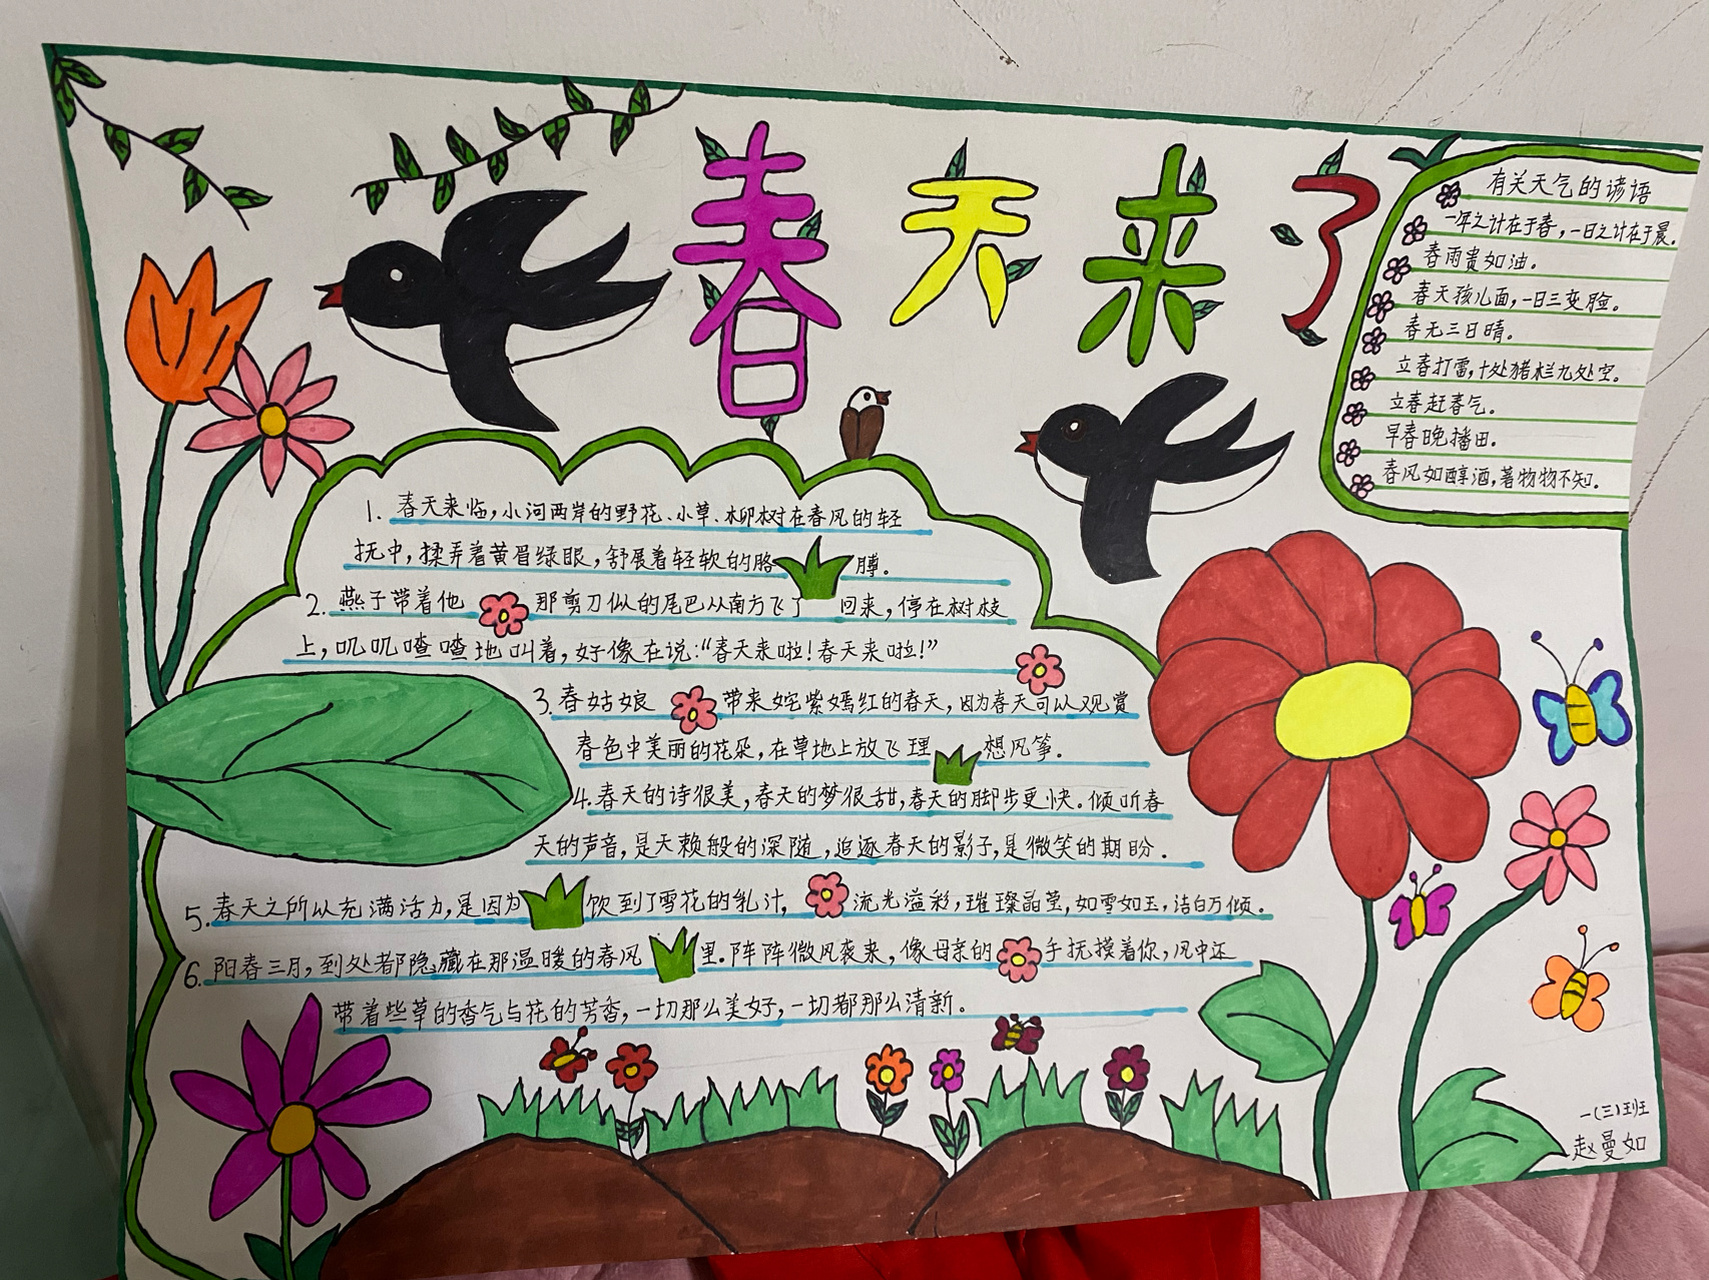 春天来了
有关天气的谚语
一年之计在于春，一日之计在于晨。
春雨贵如油。
春天孩儿面，一日三变脸。
春无三日晴。
立春打雷，十处猪栏九处空。
立春赶春气。
早春晚播田。
春风如醇酒，著物物不知。
1. 春天来临，小河两岸的野花、小草、柳树在春风的轻
抚中，揉弄着黄眉绿眼，舒展着轻软的胳膊。
2. 燕子带着他那剪刀似的尾巴从南方飞了回来，停在树枝
上，叽叽喳喳地叫着，好像在说：“春天来啦！春天来啦！”
3. 春姑娘带来姹紫嫣红的春天，因为春天可以观赏
春色中美丽的花朵，在草地上放飞理想风筝。
4. 春天的诗很美，春天的梦很甜，春天的脚步更快。倾听春
天的声音，是天赖般的深随，追逐春天的影子，是微笑的期盼.
5. 春天之所以充满活力，是因为饮到了雪花的乳汁，流光溢彩，璀璨晶莹，如雪如玉，洁白万倾。
6. 阳春三月，到处都隐藏在那温暖的春风里。阵阵微风袭来，像母亲的手抚摸着你，风中还
带着些草的香气与花的芳香，一切那么美好，一切都那么清新。
一（三）班
赵曼如